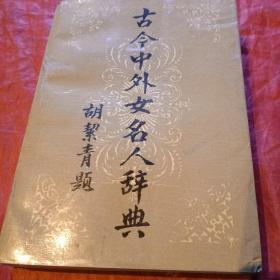 古今中外女名人辞典
胡絜青题